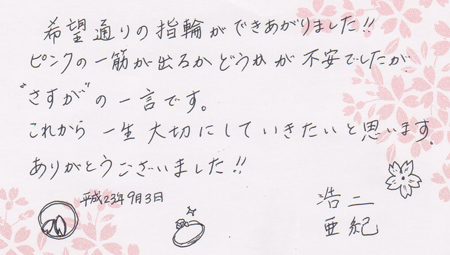 希望通りの指輪ができあがりました!!
ピンクの一筋が出るかどうかが不安でしたが
"さすが"の一言です。
これから一生大切にしていきたいと思います。
ありがとうございました!!
平成23年9月3日
浩二
亜紀